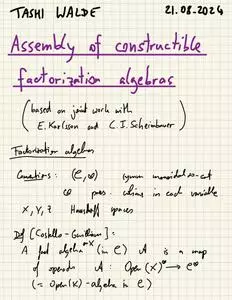 TASHI WALDE 21.08.2024
Assembly of constructible
factorization algebras
(based on joint work with
E. Karlsson and C. I. Scheimbauer)
Factorization algebras
Conventions: (C, ⊗) symm monoidal ∞-cat
⊗ pres. in each variable
X, Y, Z Hausdorff spaces
Def [Costello-Gwilliam]:
A fact algebra on X (in C) A is a map
of operads A: Open(X)^⊗ → C^⊗
(= Open(X)-algebra in C)